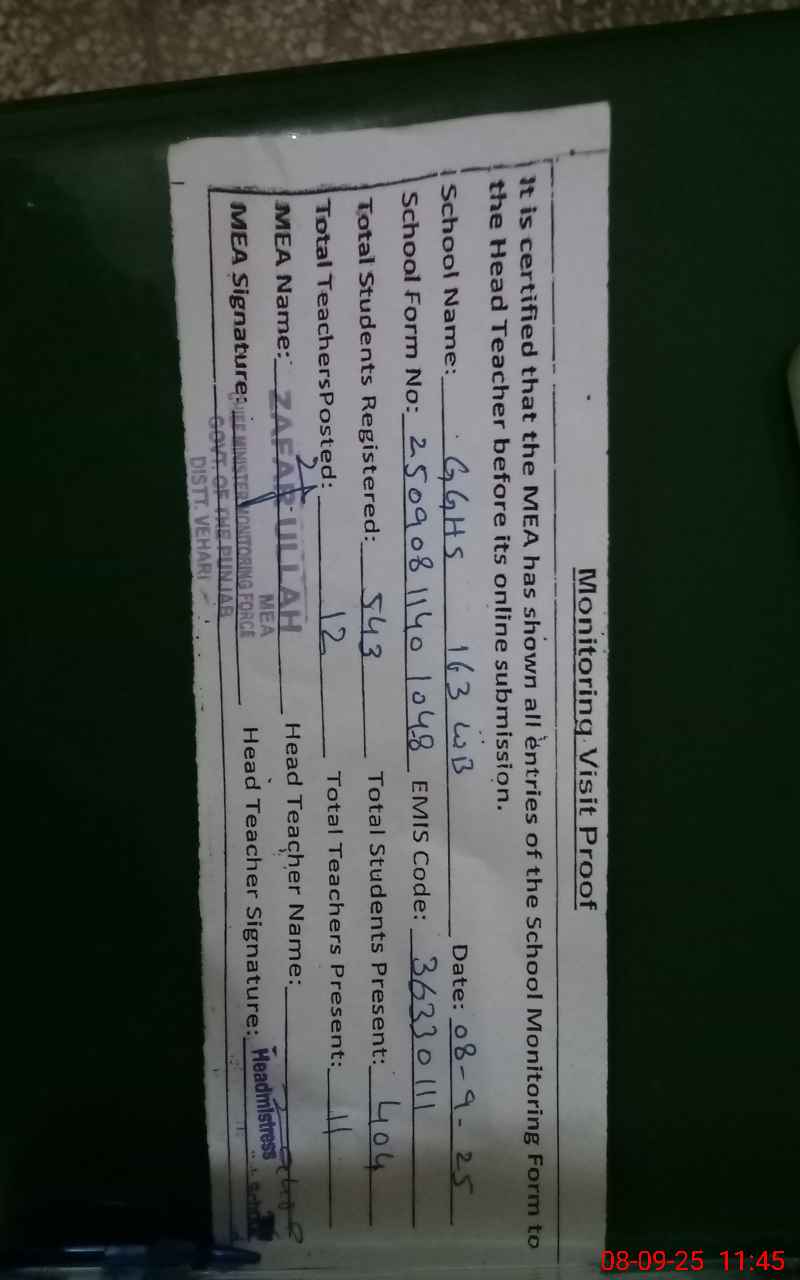 Monitoring Visit Proof
It is certified that the MEA has shown all entries of the School Monitoring Form to
the Head Teacher before its online submission.
School Name: GGHS 163 WB Date: 08-9-25
School Form No: 25090811401048 EMIS Code: 36330111
Total Students Registered: 543 Total Students Present: 404
Total TeachersPosted: 12 Total Teachers Present: 11
MEA Name: ZAFAR ULLAH Head Teacher Name:
MEA
MEA Signature: Head Teacher Signature: Headmistress
CHIEF MINISTER MONITORING FORCE
GOVT. OF THE PUNJAB
DISTT. VEHARI
08-09-25 11:45